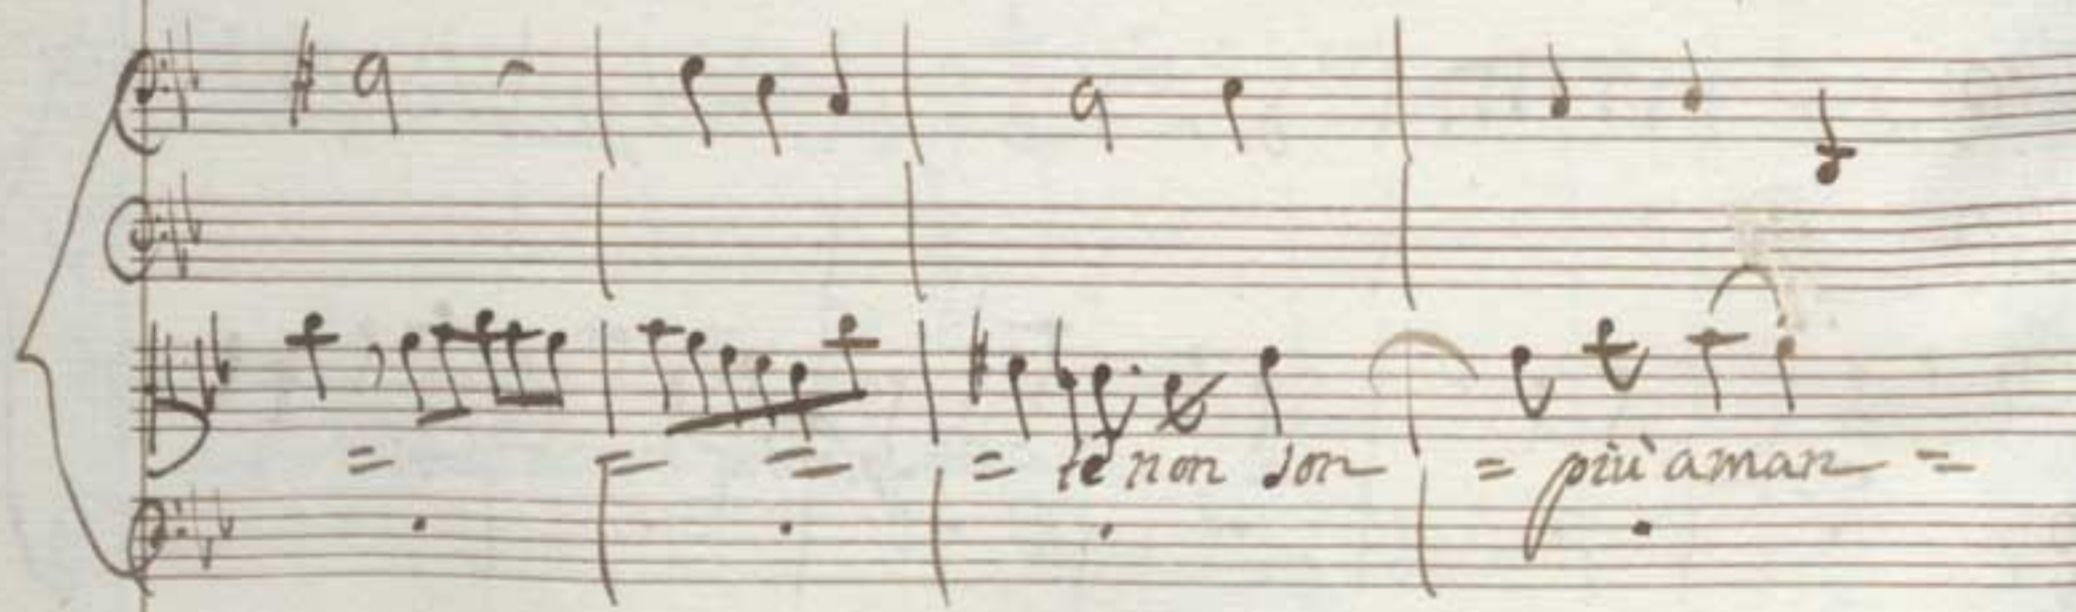 = = = = te non son = più aman =